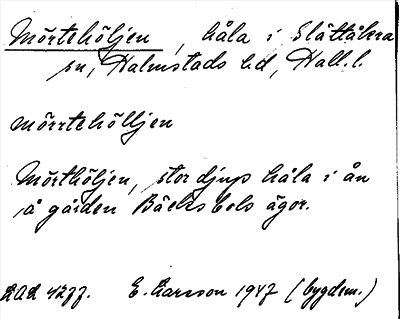 Mörtehöljen, håla i Slättåkra
sn, Halmstads hd, Hall. l.
mörrtehölljen
Mörthöljen, stor djup håla i ån
å gården Bäcksbols ägor.
E. Larsson 1947 (bygdem.)